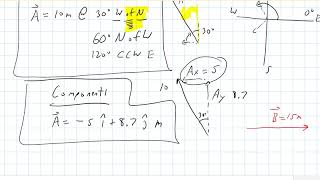 A = 10m @ 30° W of N
60° N of W
120° CCW E
30°
W
0° E
S
Components
A = -5 i + 8.7 j m
10
Ax = 5
Ay 8.7
30°
B = 15m